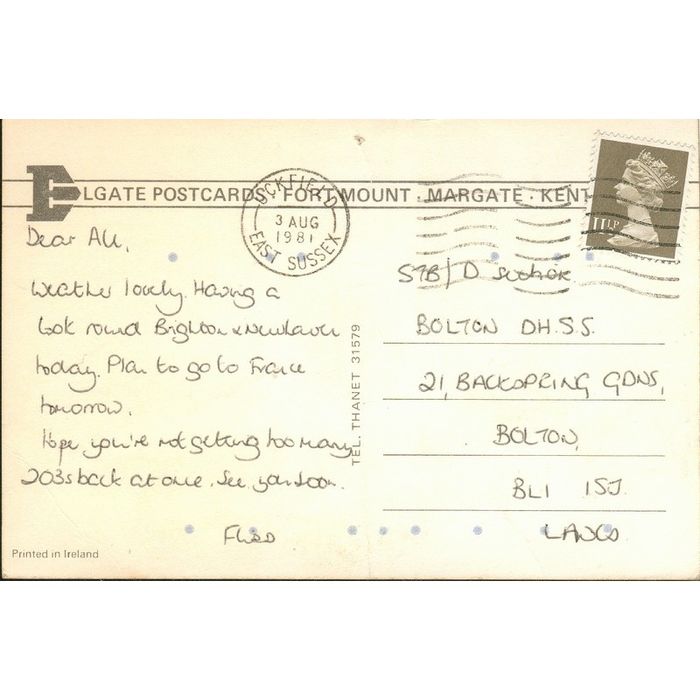 ELGATE POSTCARDS · FORT MOUNT · MARGATE · KENT
UCKFIELD
3 AUG
1981
EAST SUSSEX
11½P
Dear All,
Weather lovely. Having a
look round Brighton & Newhaven
today. Plan to go to France
tomorrow.
Hope you're not getting too many
203s back at one. See you soon.
TEL. THANET 31579
STB/D Section
BOLTON DH.S.S.
21, BACKSPRING GDNS,
BOLTON,
BL1 1SJ.
LANCS
Printed in Ireland